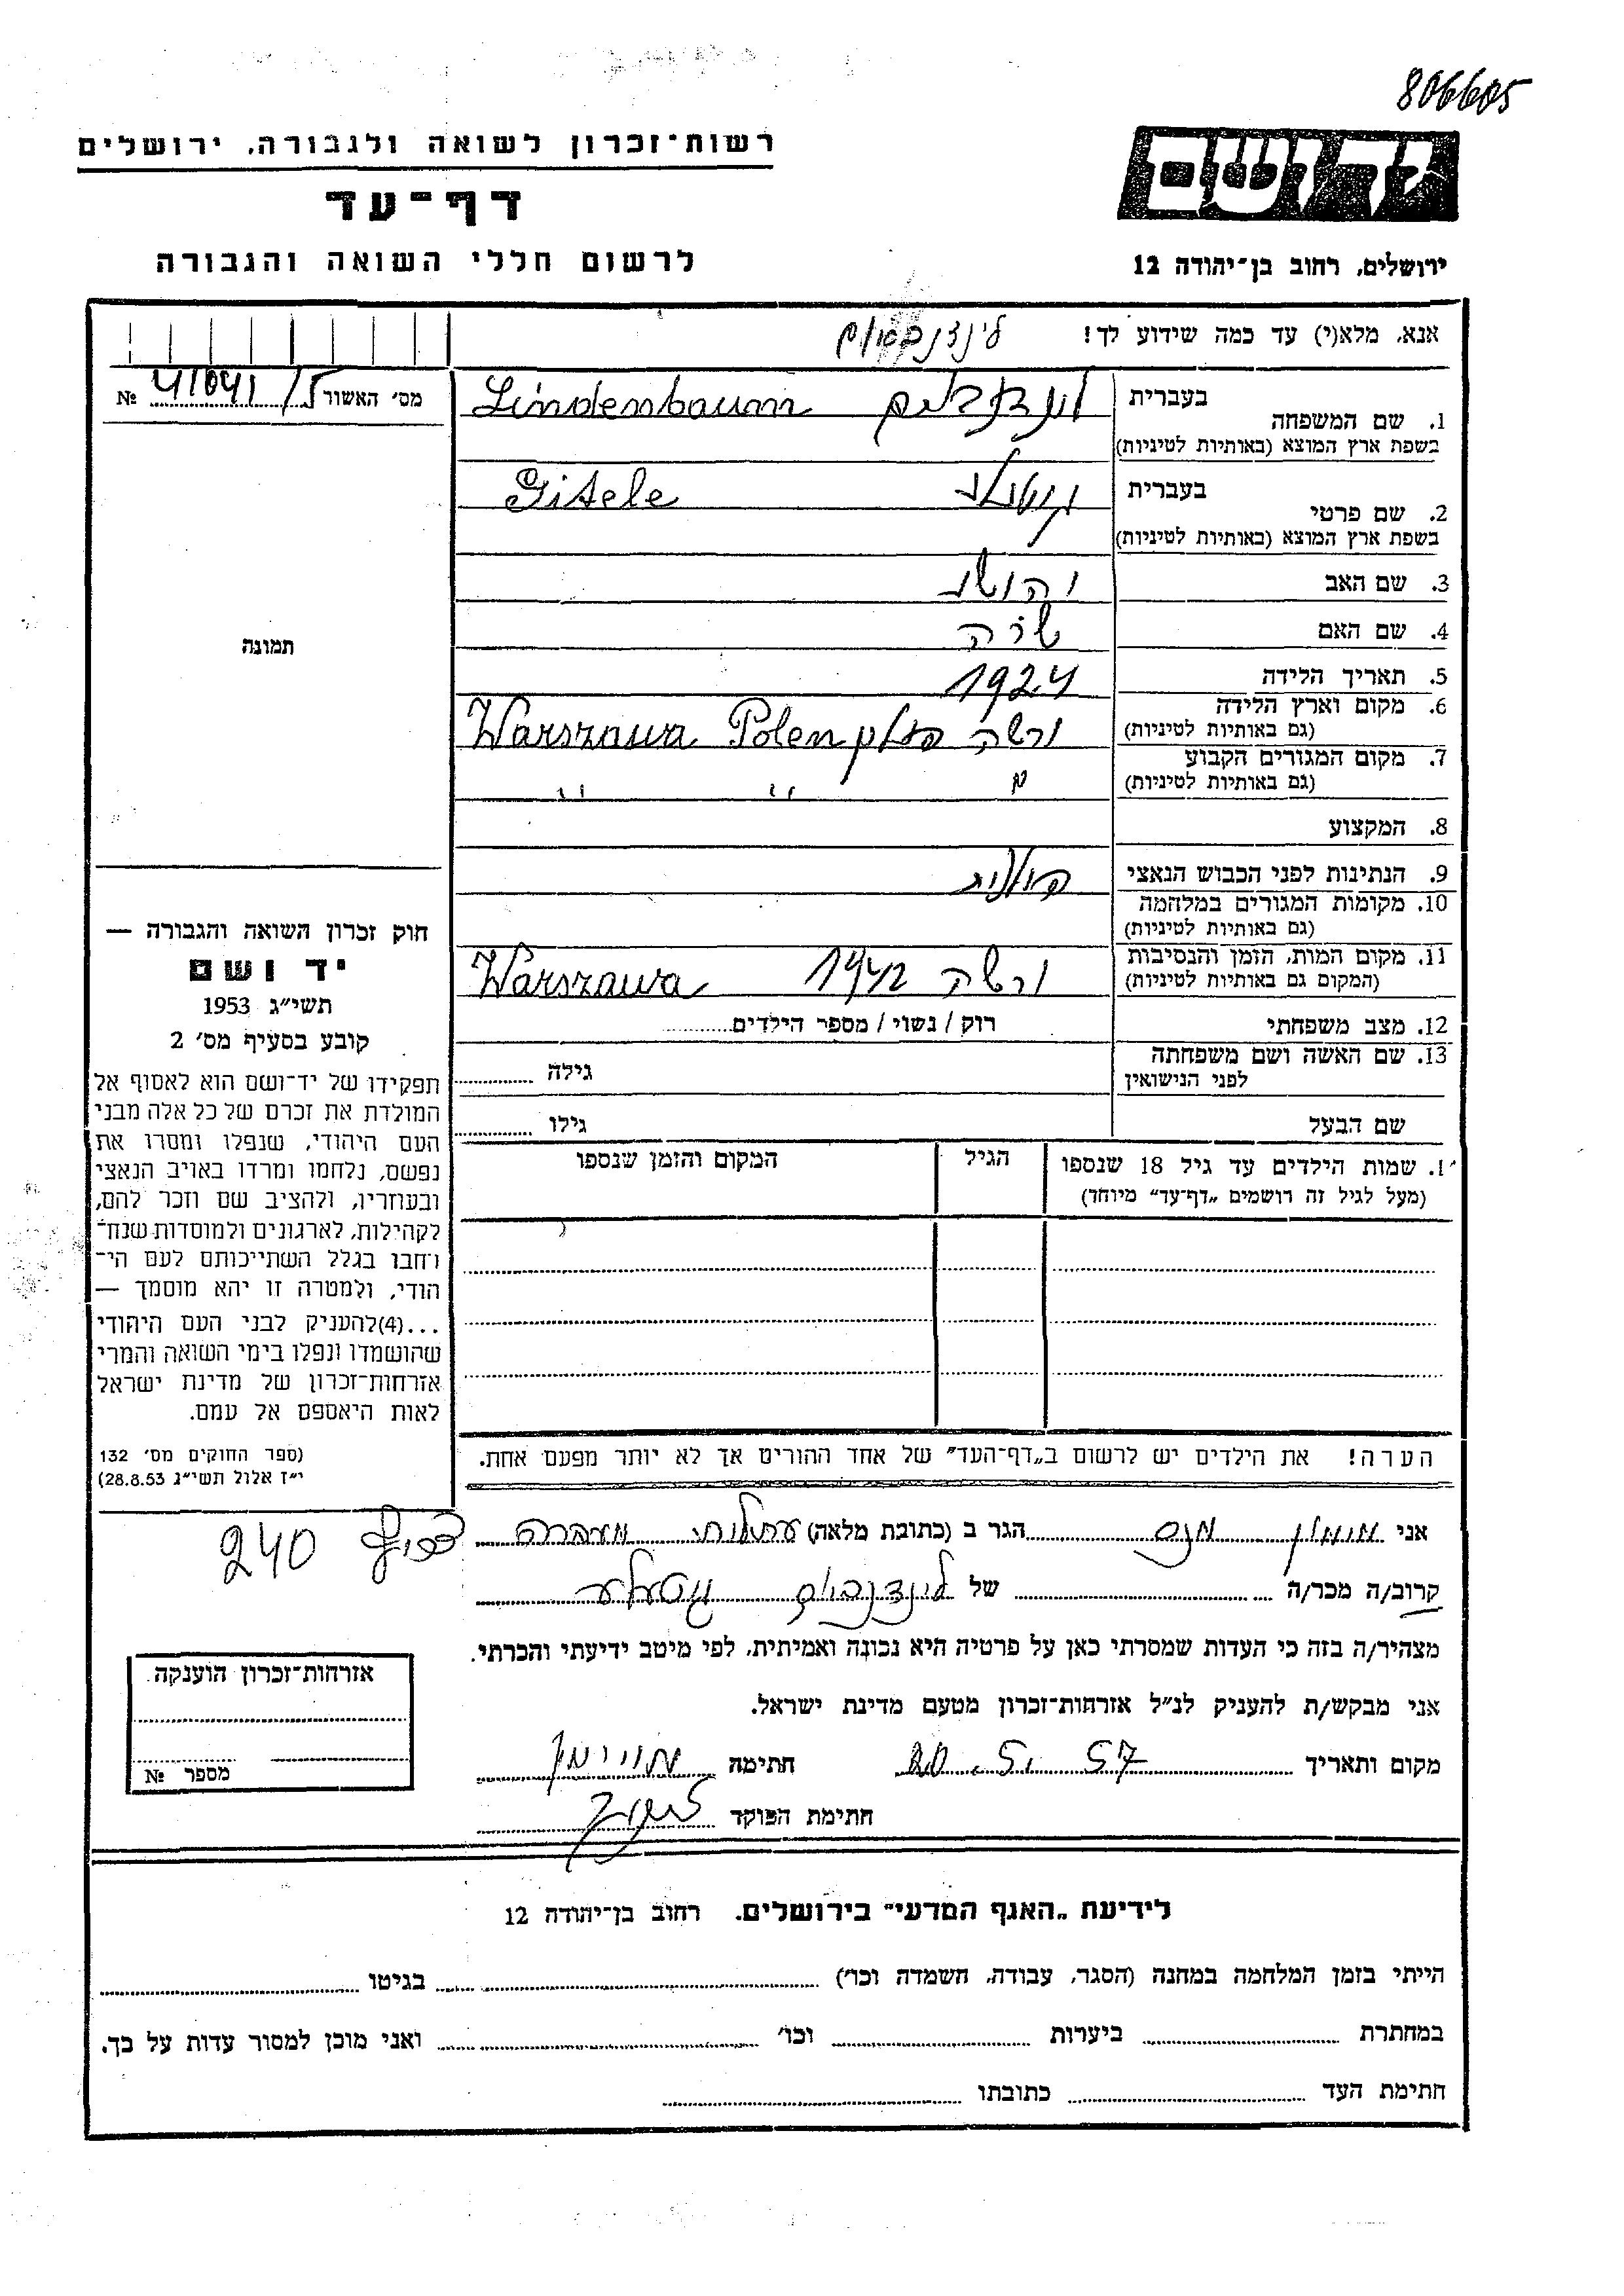 806605
רשות־זכרון לשואה ולגבורה, ירושלים
דף־עד
לרשום חללי השואה והגבורה
ידושם
ירושלים, רחוב בן־יהודה 12
אנא, מלא(י) עד כמה שידוע לך!
לינדנבאום
מס׳ האשור 41041/5 №
1. שם המשפחה
בעברית
Lindenbaum
בשפת ארץ המוצא (באותיות לטיניות)
2. שם פרטי
בעברית
Gitele
בשפת ארץ המוצא (באותיות לטיניות)
3. שם האב
4. שם האם שרה
5. תאריך הלידה 1924
6. מקום וארץ הלידה
(גם באותיות לטיניות)
ורשה פולין Warszawa Polen
7. מקום המגורים הקבוע
(גם באותיות לטיניות)
" " "
8. המקצוע
9. הנתינות לפני הכבוש הנאצי פולנית
10. מקומות המגורים במלחמה
(גם באותיות לטיניות)
11. מקום המות, הזמן והנסיבות
(המקום גם באותיות לטיניות)
ורשה 1942 Warszawa
12. מצב משפחתי רוק / נשוי / מספר הילדים
13. שם האשה ושם משפחתה
לפני הנישואין
גילה
שם הבעל
גילו
תמונה
חוק זכרון השואה והגבורה —
יד ושם
תשי״ג 1953
קובע בסעיף מס׳ 2
תפקידו של יד־ושם הוא לאסוף אל
המולדת את זכרם של כל אלה מבני
העם היהודי, שנפלו ומסרו את
נפשם, נלחמו ומרדו באויב הנאצי
ובעוזריו, ולהציב שם וזכר להם,
לקהילות, לארגונים ולמוסדות שנח־
רחבו בגלל השתייכותם לעם הי־
הודי, ולמטרה זו יהא מוסמך —
...(4)להעניק לבני העם היהודי
שהושמדו ונפלו בימי השואה והמרי
אזרחות־זכרון של מדינת ישראל
לאות היאספם אל עמם.
(ספר החוקים מס׳ 132
י״ז אלול תשי״ג 28.8.53)
1. שמות הילדים עד גיל 18 שנספו
(מעל לגיל זה רושמים „דף־עד״ מיוחד)
הגיל
המקום והזמן שנספו
הערה! את הילדים יש לרשום ב„דף־העד״ של אחד ההורים אך לא יותר מפעם אחת.
אני הגר ב (כתובת מלאה) עתלית מעברה 240
קרוב/ה מכר/ה של לינדנבוים גיטעלע
מצהיר/ה בזה כי העדות שמסרתי כאן על פרטיה היא נכונה ואמיתית, לפי מיטב ידיעתי והכרתי.
אני מבקש/ת להעניק לנ״ל אזרחות־זכרון מטעם מדינת ישראל.
מקום ותאריך 20.5.57 חתימה
חתימת הפוקד
אזרחות־זכרון הוענקה
מספר №
לידיעת „האגף המדעי״ בירושלים. רחוב בן־יהודה 12
הייתי בזמן המלחמה במחנה (הסגר, עבודה, השמדה וכו׳) בגיטו
במחתרת ביערות וכו׳ ואני מוכן למסור עדות על כך.
חתימת העד כתובתו